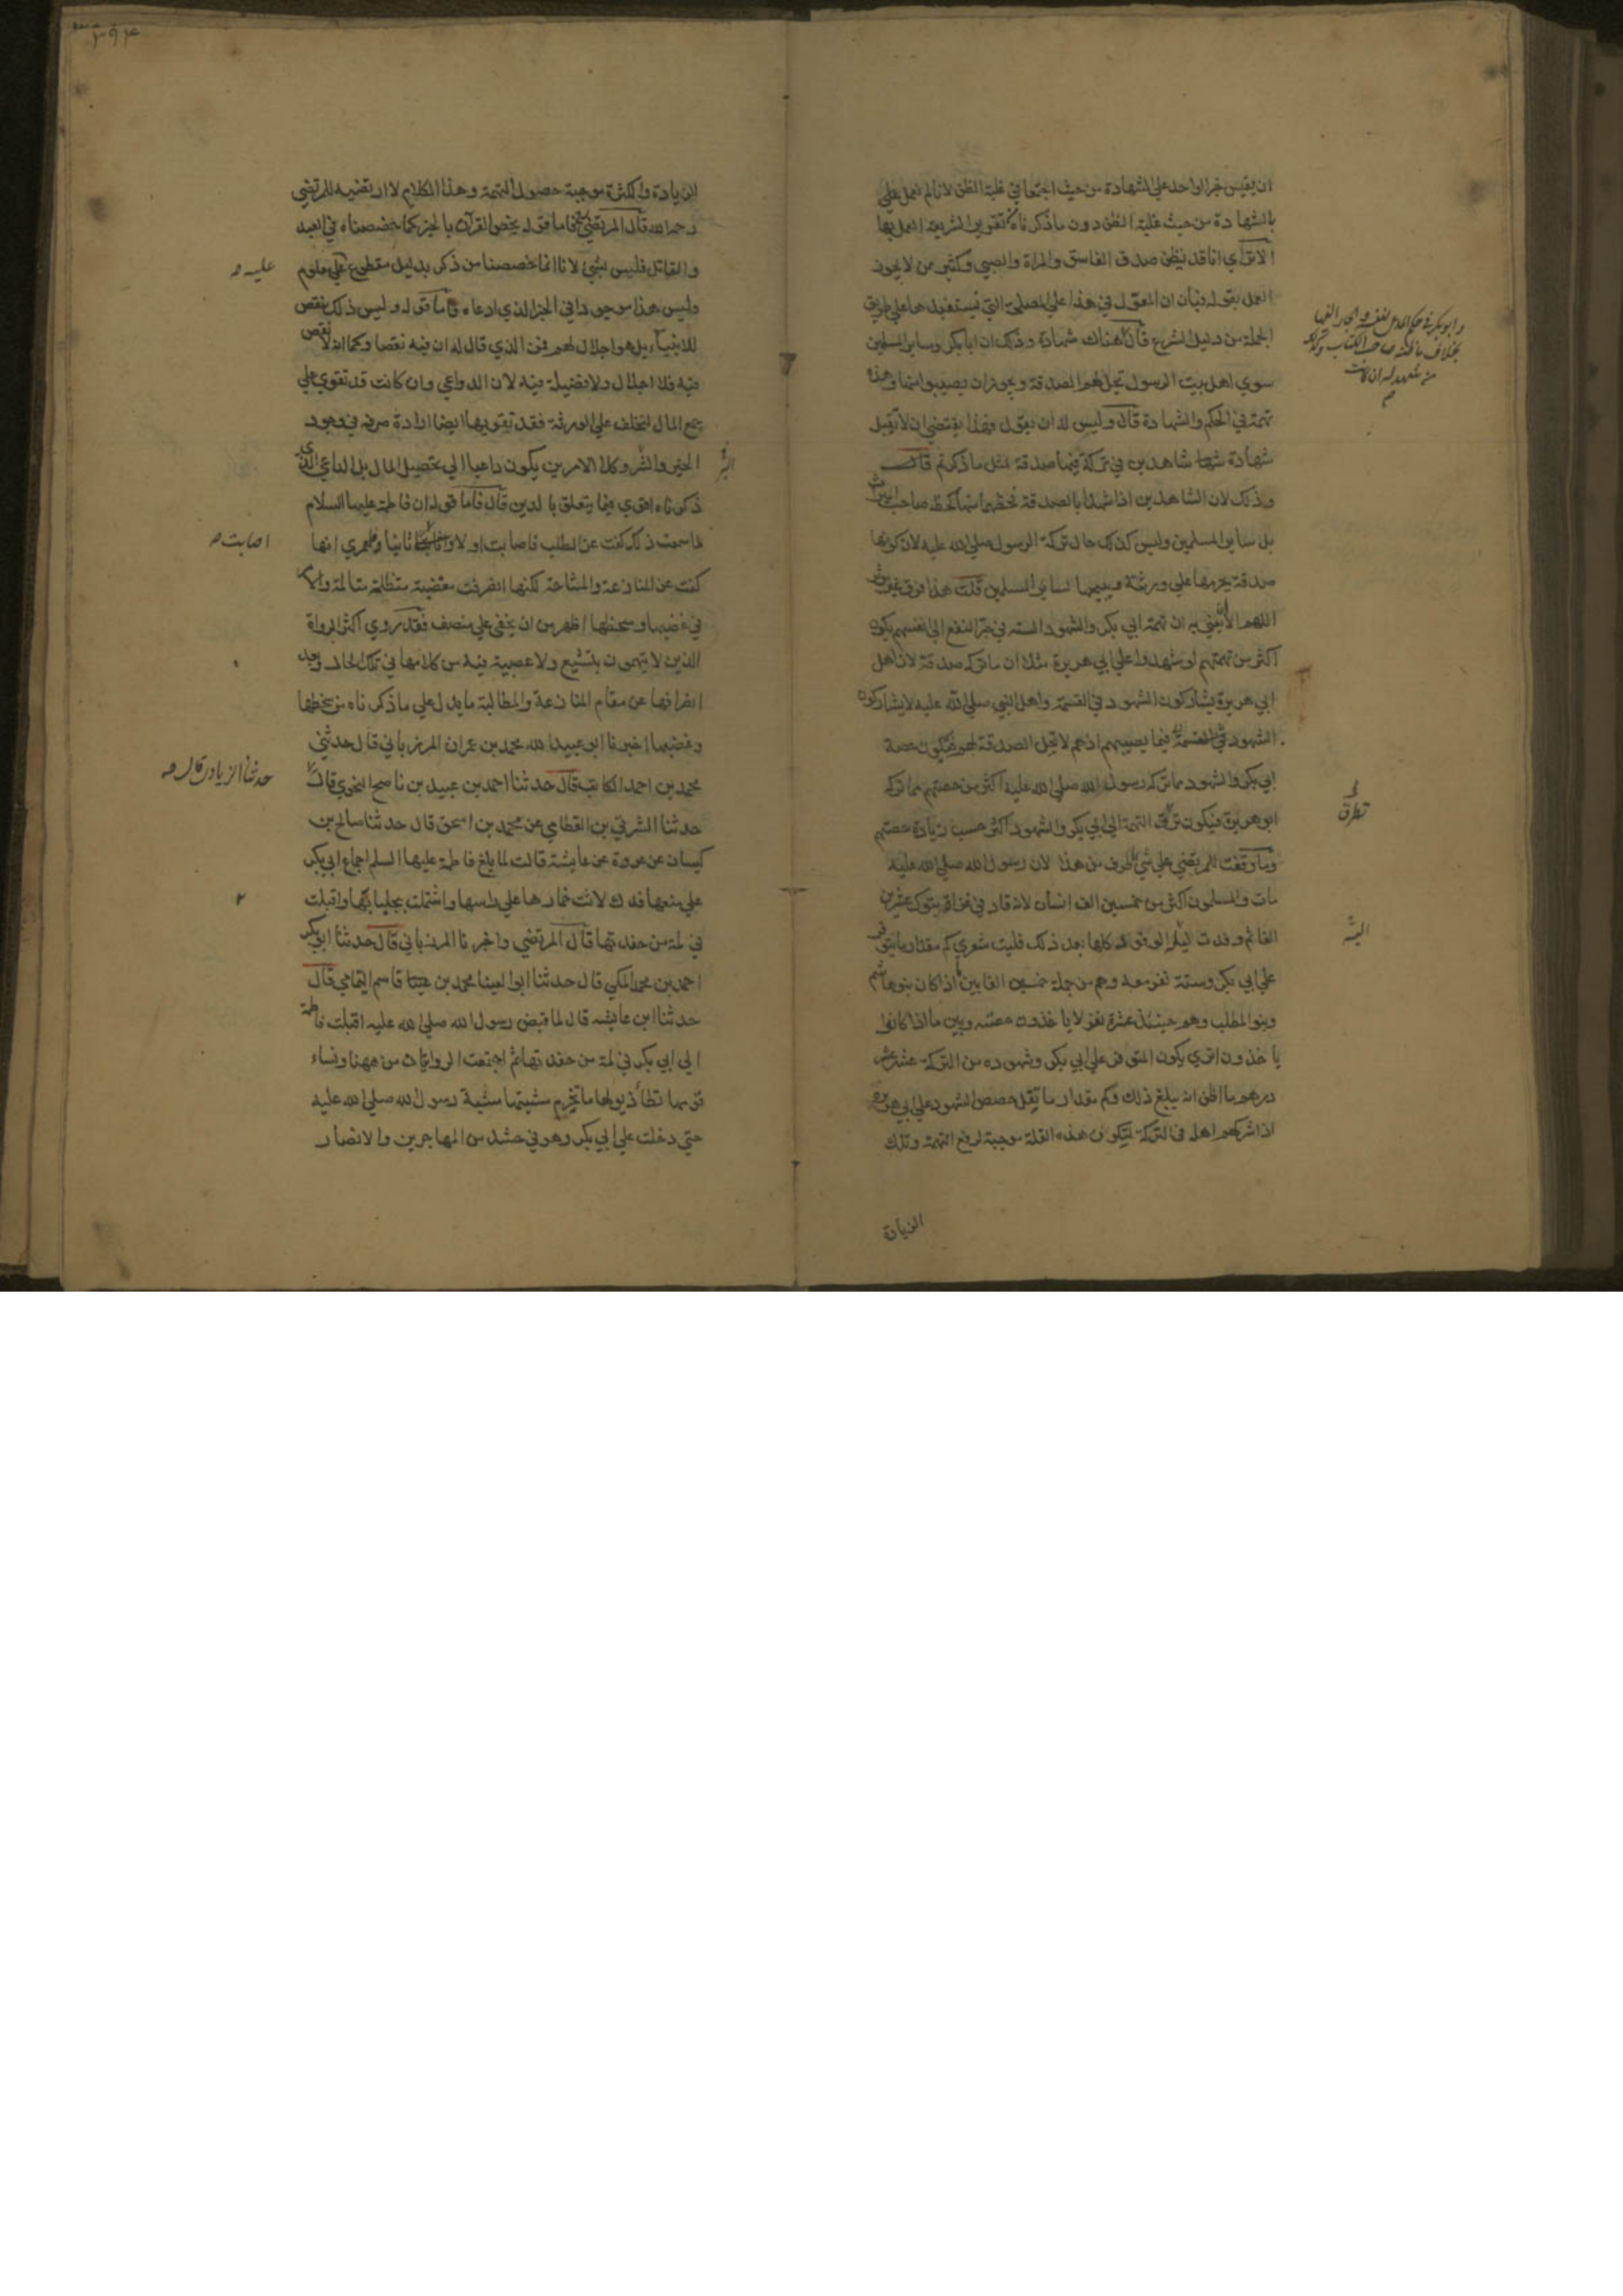 ان يقيس خبر الواحد على الشهادة من حيث اجتمعا في غلبة الظن لانا لم نعمل على
بالشهادة من حيث غلبة الظن دون ما ذكرناه من تقوير الشريعة العمل بها
الا ترى انا قد نظن صدق الفاسق والمراة والصبي وكثير ممن لا يجوز
العمل بقوله فبان ان المعول في هذا على المصلحة التي نستفيدها على طريق
الجملة من دليل الشرع قال هناك شهادة وذلك ان ابا بكر وساير المسلمين
سوى اهل بيت الرسول تحل لهم الصدقة ويجوز ان يصيبوا منها وهذه
تهمة في الحكم والشهادة قال وليس له ان يقول فهذا يقتضي ان لا تقبل
شهادة شاهدين في تركة فيها صدقة لمثل ما ذكرتم قال
وذلك لان الشاهدين اذا شهدا بالصدقة فحظهما منها كحظ صاحب الميراث
بل ساير المسلمين وليس كذلك حال تركة الرسول صلى الله عليه لان كونها
صدقة يحرمها على ورثته ويبيحها لساير المسلمين قلت هذا فرق غير مؤثر
اللهم الا ان يعني به ان تهمة ابي بكر والشهود الستة في جر النفع الى انفسهم يكون
اكثر من تهمتهم لو شهدوا على ابي هريرة مثلا ان ما تركه صدقة لان اهل
ابي هريرة يشاركون الشهود في القسمة واهل النبي صلى الله عليه لا يشاركون
الشهود في القسمة فيما يصيبهم اذ هم لا تحل الصدقة لهم فتكون حصة
ابي بكر والشهود مما تركه رسول الله صلى الله عليه اكثر من حصتهم مما تركه
ابو هريرة فيكون تطرق التهمة الى ابي بكر والشهود اكثر حسب زيادة حصتهم
وما وقفت للمرتضى على شي اطرف من هذا لان رسول الله صلى الله عليه
مات والمسلمون اكثر من خمسين الف انسان لانه قاد في غزاة تبوك عشرين
الفا ثم وفدت اليه الوفود كلها بعد ذلك فليت شعري كم مقدار ما يتوفر
على ابي بكر وستة نفر معه وهم من جملة خمسين الفا بين اذا كان بنو هاشم
وبنو المطلب وهم حينئذ عشرة نفر لا يأخذون حصته وبين ما اذا كانوا
يأخذون اترى يكون المتوفر على ابي بكر وشهوده من التركة عشر عشر
درهم ما اظن انه يبلغ ذلك وكم مقدار ما تقل حصص الشهود على ابي هريرة
اذا شركهم اهله في التركة لتكون هذه القلة موجبة لرفع التهمة وتلك
الزيادة
تطرق
الزيادة والكثرة موجبة حصول التهمة وهذا الكلام لا ارتضيه للمرتضى
رحمه الله قال المرتضى فاما قوله يخص القران بالخبر كما خصصناه في العبد
والقاتل فليس بشيء لانا انما خصصنا من ذكر بدليل مقطوع على معلوم
وليس هذا موجودا في الخبر الذي ادعاه فاما قوله وليس ذلك ينقص
للانبياء بل هو اجلال لهم فمن الذي قال له ان فيه نقصا وكما انه لا نقص
فيه فلا اجلال ولا فضيلة فيه لان الدواعي وان كانت قد تقوى على
جمع المال لتخلف على الورثة فقد تقويها ايضا ارادة صرفه في وجوه
الخير والشر وكلا الامرين يكون داعيا الى تحصيل المال بل الداعي الذي
ذكرناه اقوى فيما يتعلق بالدين قال فاما قوله ان فاطمة عليها السلام
لما سمعت ذلك كفت عن الطلب فاصابت اولا واصابت ثانيا فلعمري انها
كفت عن المنازعة والمشاحة لكنها انصرفت مغضبة متظلمة متالمة والامر
في غضبها وسخطها اظهر من ان يخفى على منصف فقد روى اكثر الرواة
الذين لا يتهمون بتشيع ولا عصبية فيه من كلامها في تلك الحال وبعد
انصرافها عن مقام المنازعة والمطالبة ما يدل على ما ذكرناه من سخطها
وغضبها اخبرنا ابو عبيد الله محمد بن عمران المرزباني قال حدثني
محمد بن احمد الكاتب قال حدثنا احمد بن عبيد بن ناصح النحوي قال
حدثنا الشرقي بن القطامي عن محمد بن اسحق قال حدثنا صالح بن
كيسان عن عروة عن عايشة قالت لما بلغ فاطمة عليها السلم اجماع ابي بكر
على منعها فدك لاثت خمارها على راسها واشتملت بجلبابها واقبلت
في لمة من حفدتها قال المرتضى واخبرنا المرزباني قال حدثنا ابو بكر
احمد بن محمد المكي قال حدثنا ابو العينا محمد بن قاسم اليمامي قال
حدثنا ابن عايشه قال لما قبض رسول الله صلى الله عليه اقبلت فاطمة
الى ابي بكر في لمة من حفدتها ثم اجتمعت الروايتان من ههنا ونساء
قومها تطأ ذيولها ما تخرم مشيتها مشية رسول الله صلى الله عليه
حتى دخلت على ابي بكر وهو في حشد من المهاجرين والانصار
عليه
اصابت
حدثنا الزيادي قال